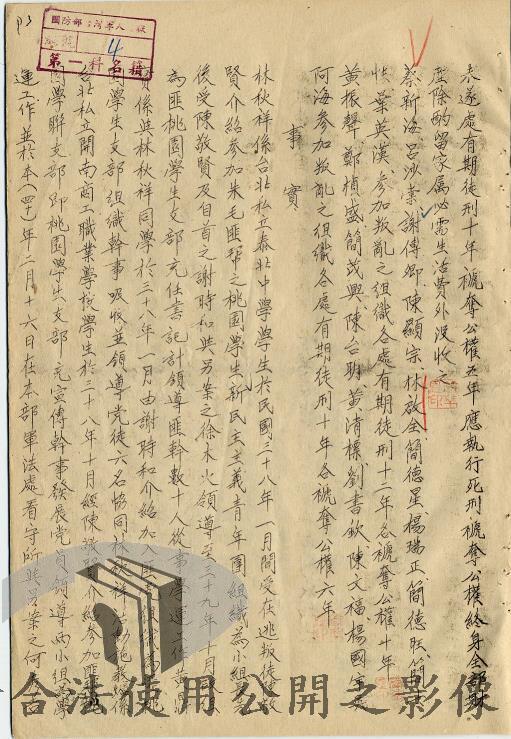 未遂處有期徒刑十年褫奪公權五年應執行死刑褫奪公權終身全部財
產除酌留家屬必需生活費外沒收之
蔡新海呂沙棠謝傳卿陳顯宗林放全簡德星楊瑞正簡德旺簡
葉英漢參加叛亂之組織各處有期徒刑十二年各褫奪公權十年
黃振聲鄭楨盛簡茂興陳台明黃清標劉書欽陳文福楊國
何海參加叛亂之組織各處有期徒刑十年各褫奪公權六年
事實
林秋祥係台北私立泰北中學學生於民國三十八年一月間受在逃叛徒
賢介紹參加朱毛匪幫之桃園學生新民主主義青年團組織為小組
後受陳敬賢及自首之謝時和與另案之徐木火領導至三十九年十月
為匪桃園學生支部充任書記計領導匪幹數十人從事學運工作黃
係與林秋祥同學於三十八年一月由謝時和介紹加入
學生支部組織幹事吸收並領導党徒六名協同林秋祥
台北私立開南商工職業學校學生於三十八年十月經陳敬賢介紹參加匪
學聯支部即桃園學生支部充宣傳幹事發展党員領導兩小組為學
運工作並於本(四十)年二月十六日在本部軍法處看守所與另案之何
國防部
第一科名籍
4
合法使用公開之影像